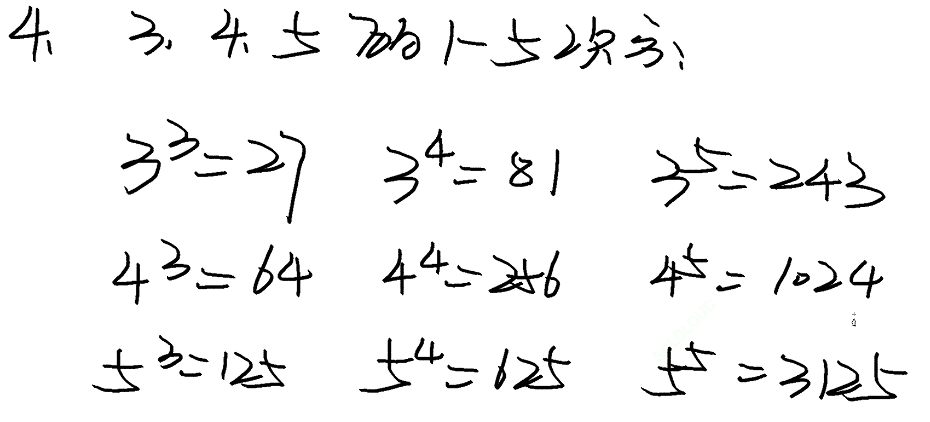 4、 3、4、5的1-5次方:
3³=27 3⁴=81 3⁵=243
4³=64 4⁴=256 4⁵=1024
5³=125 5⁴=625 5⁵=3125